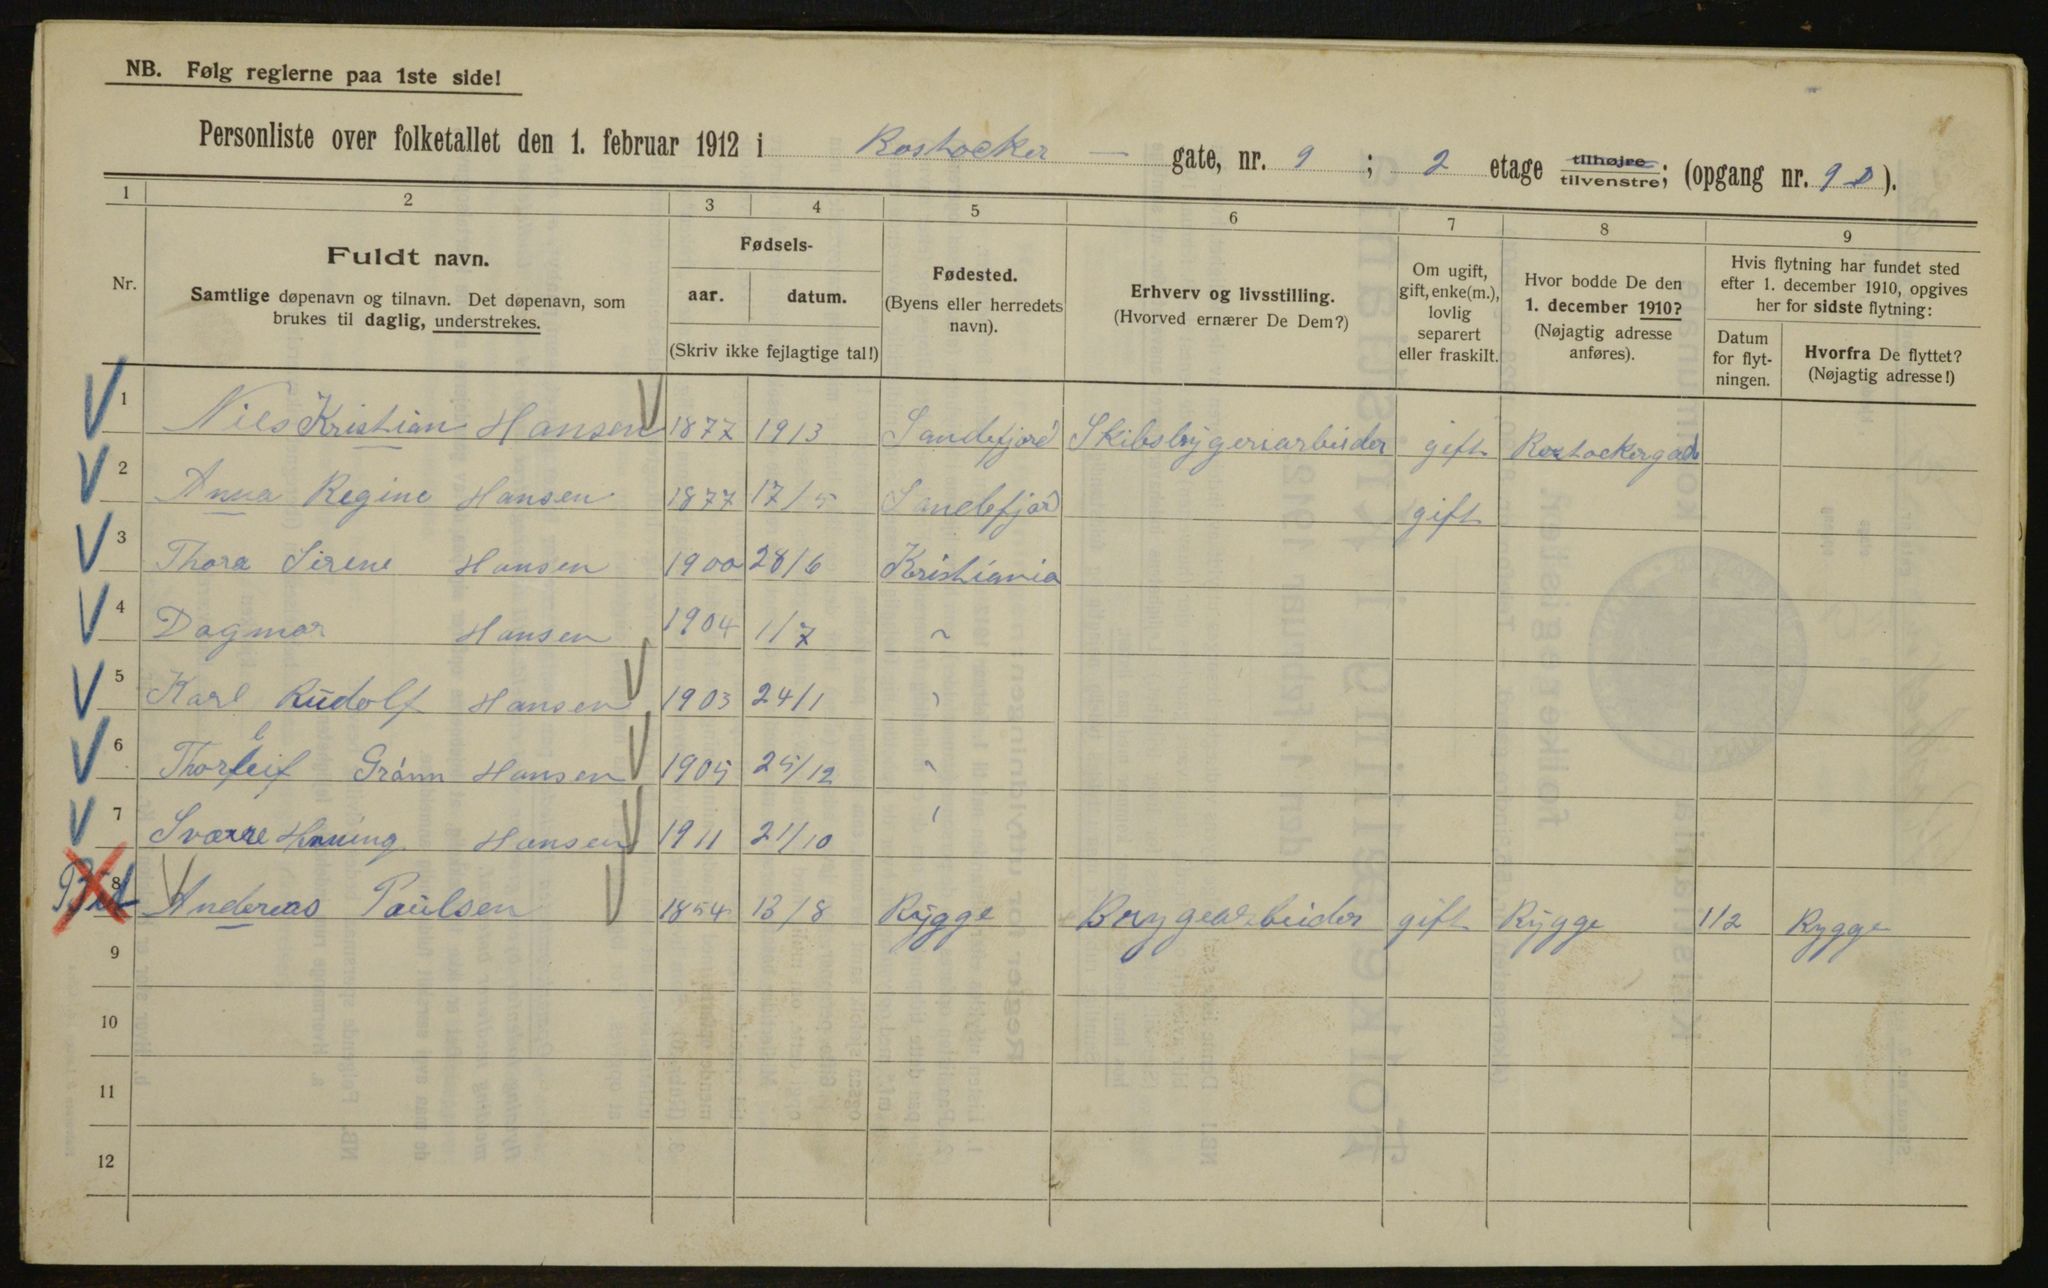 NB. Følg reglerne paa 1ste side!
Personliste over folketallet den 1. februar 1912 i Rostocker - gate, nr. 9 ; 2 etage tilhøjre tilvenstre; (opgang nr. 9 D ).
1 2 3 4 5 6 7 8 9
Nr.
Fuldt navn.
Samtlige døpenavn og tilnavn. Det døpenavn, som
brukes til daglig, understrekes.
Fødsels-
aar. datum.
(Skriv ikke fejlagtige tal!)
Fødested.
(Byens eller herredets
navn).
Erhverv og livsstilling.
(Hvorved ernærer De Dem?)
Om ugift,
gift, enke(m.),
lovlig
separert
eller fraskilt.
Hvor bodde De den
1. december 1910?
(Nøjagtig adresse
anføres).
Hvis flytning har fundet sted
efter 1. december 1910, opgives
her for sidste flytning:
Datum
for flyt-
ningen.
Hvorfra De flyttet?
(Nøjagtig adresse!)
1 Nils Kristian Hansen 1877 19/3 Sandefjord Skibsbygeriarbeider gift Rostockergad
2 Anna Regine Hansen 1877 17/5 Sandefjord gift
3 Thora Sirene Hansen 1900 28/6 Kristiania
4 Dagmar Hansen 1904 1/7 "
5 Karl Rudolf Hansen 1903 24/1 "
6 Thorleif Grånn Hansen 1905 25/12 "
7 Sværre Hnning Hansen 1911 21/10 "
8 Andereas Paulsen 1854 13/8 Rygge Brygearbeider gift Rygge 1/2 Rygge
9
10
11
12